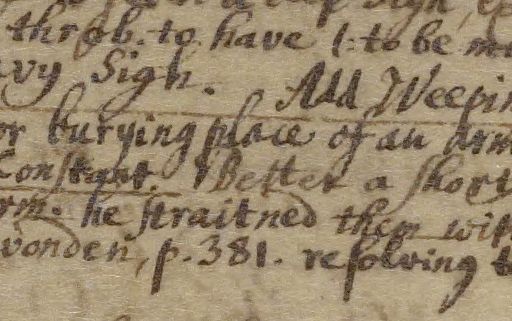 throb. to have 1. to be
vy Sigh. Add Weepin
or burying place of an arm
Constant. Better a short
rm. he straitned them wit
vonden, p. 381. resolving t